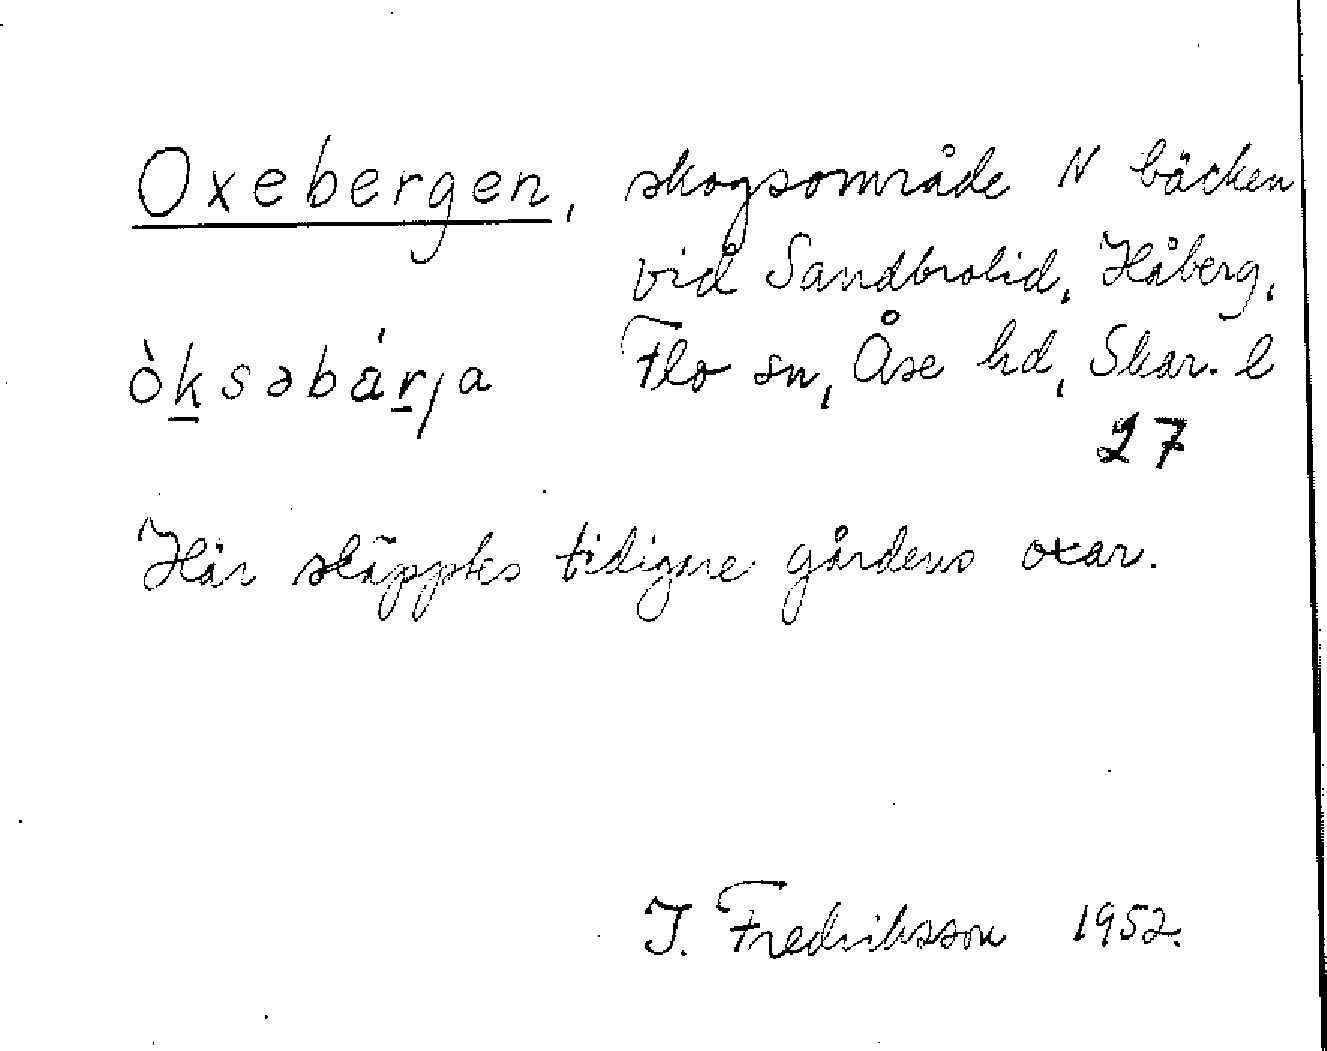 Oxebergen, skogsområde N bäcken
vid Sandbrolid, Håberg,
òksəbárja Flo sn, Åse hd, Skar. l
27
Här släpptes tidigare gårdens oxar.
I. Fredriksson 1952.